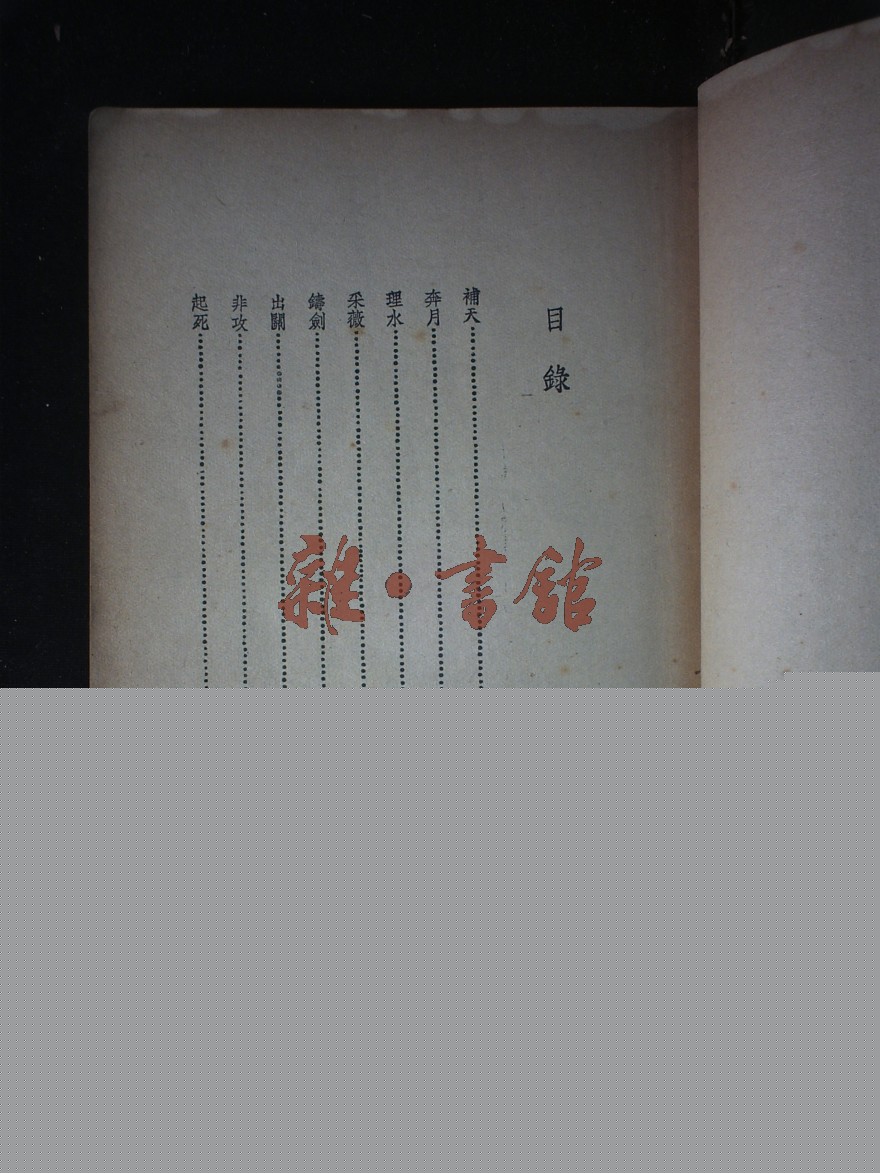 目錄
補天
奔月
理水
采薇
鑄劍
出關
非攻
起死
雜·書館